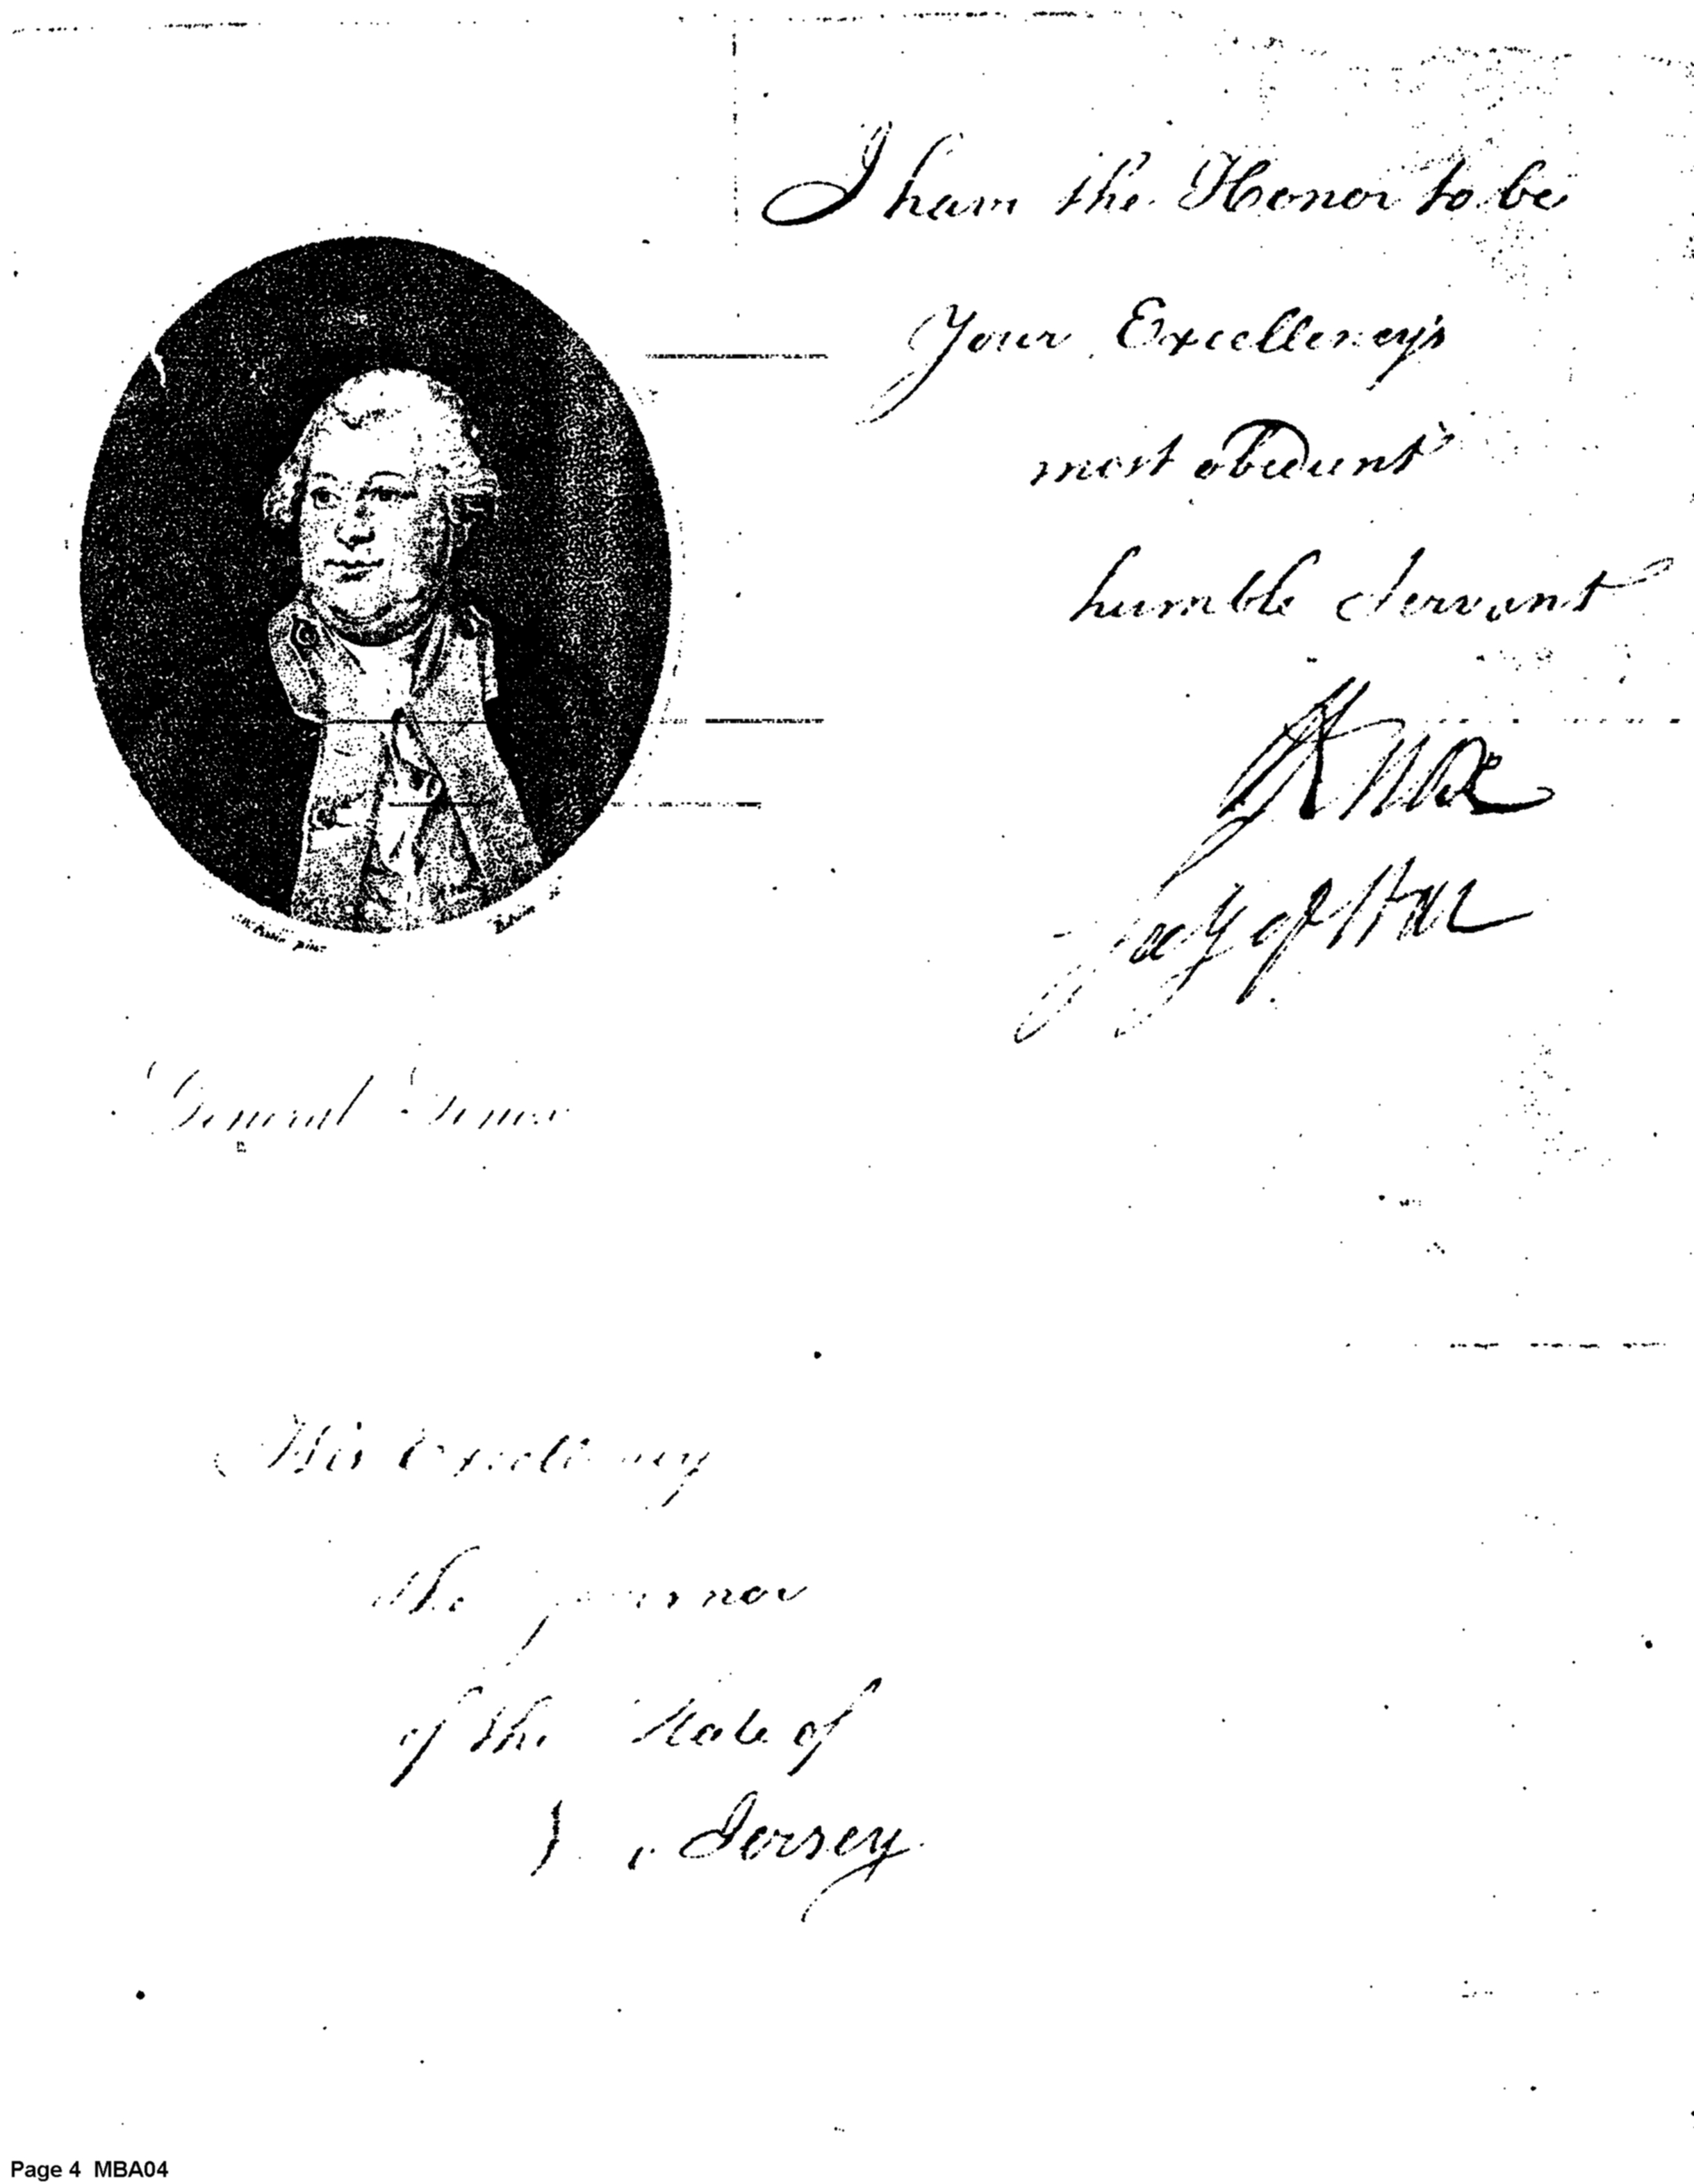 I have the Honor to be
Your Excellency's
most obedient
humble Servant
HKnox
Secy of War
General Knox
His Excellency
the governor
of the State of
Jersey
Page 4 MBA04